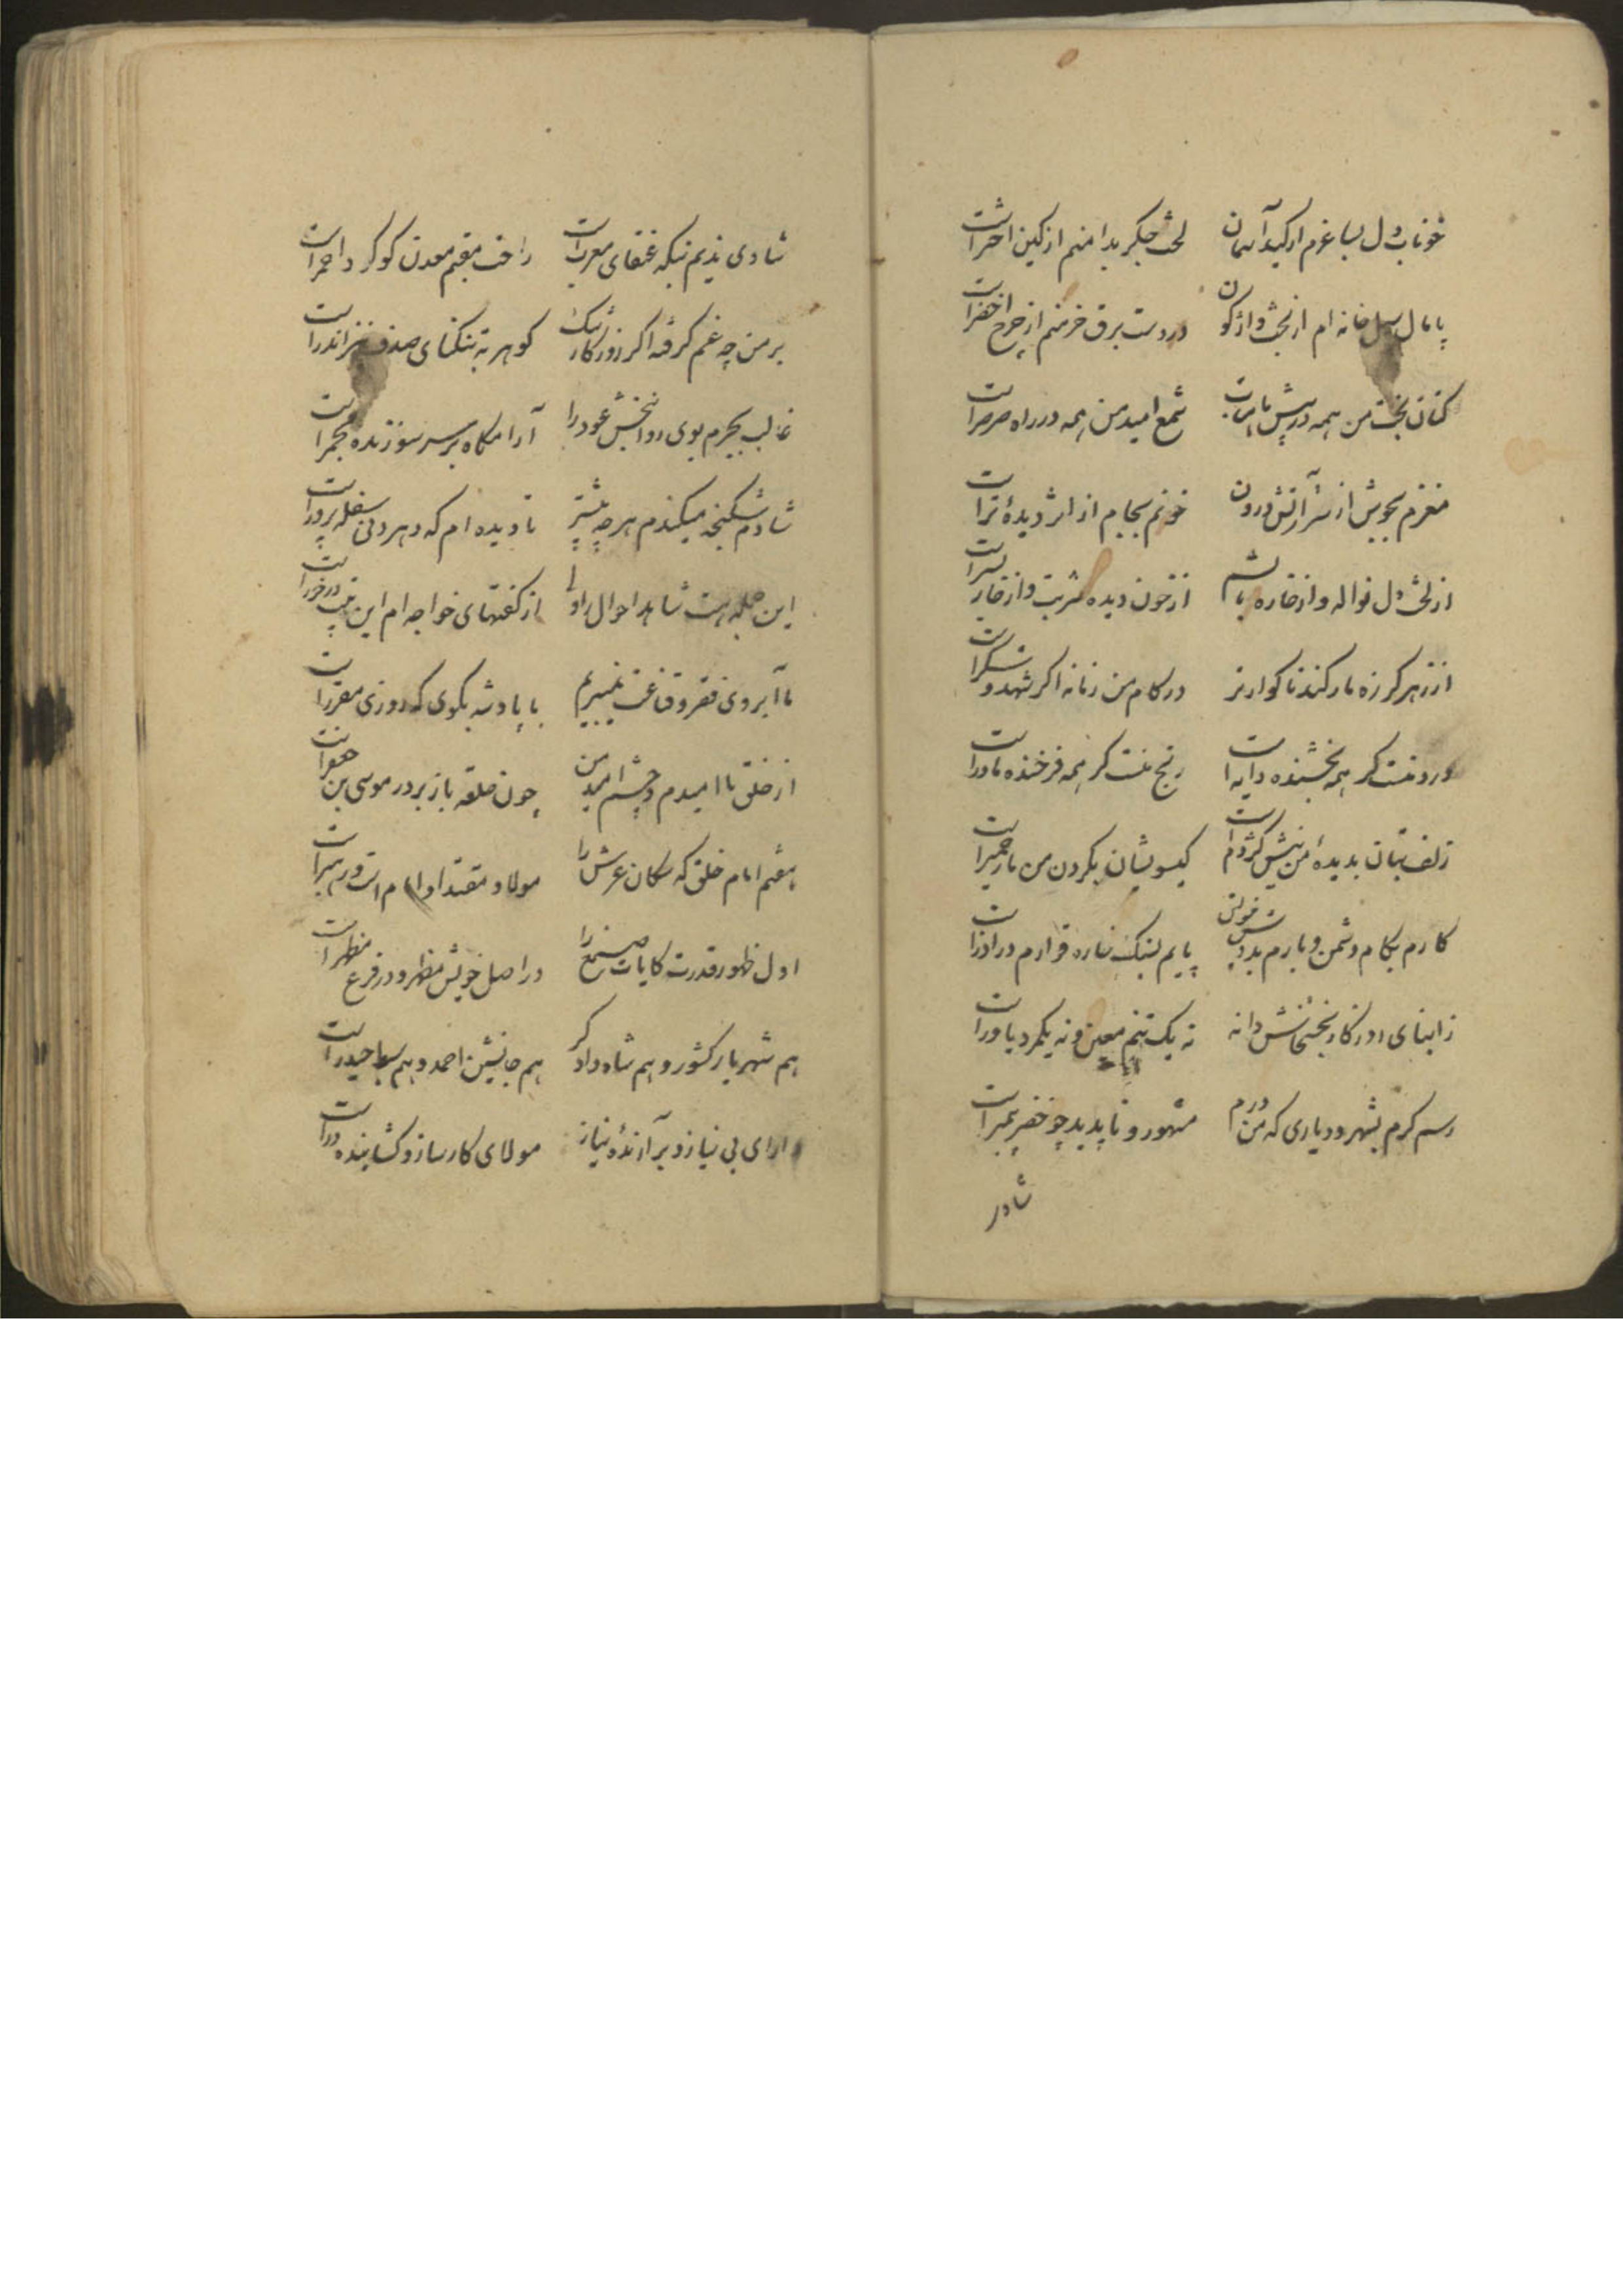 خوناب دل بساغرم از کید آسمان لخت جگر بدامنم از کین اخترا‌ست
پامال سیل خانه ام از بخت واژگون در دست برق خرمنم از چرخ اخضرا‌ست
کتان بخت من همه در پیش ماهتاب شمع امید من همه در راه صرصرا‌ست
مغزم بجوش از شر آتش درون خونم بجام از اثر دیدهٔ ترا‌ست
از لخت دل نواله و از خاره بالشم از خون دیده شربت و از خار بسترا‌ست
از زهر کرزه مار کند ناکوارتر در کام من زمانه اکر شهد و شکرا‌ست
درد منست کر همه بخشنده دایه است رنج منست کر همه فرخنده مادرا‌ست
زلف بتان بدیدهٔ من نیش کژدم است کیسویشان بکردن من مار حمیرا‌ست
کارم بکام دشمن و بارم بدوش پایم بسنک خاره قرارم در آذرا‌ست
ز ابنای روزکار بخشمانش دانه نه یک تنم معین و نه یکمرد یاورا‌ست
رسم کرم بشهر و دیاری که من درم مشهور و ناپدید چو خضر پیمبرا‌ست
شادی
شادی ندیم نیکه عنقای مغربست راحت مقیم معدن کوکرد احمرا‌ست
بر من چه غم کرفته اکر روزکار تنک کوهر به تنکنای صدف نیز اندرا‌ست
غالب بجرم بوی روانبخش عود را آرامکاه بر سر سوزنده مجمرا‌ست
شادم شکنجه میکندم هر چه بیشتر تا دیده ام که دهر دنی سفله پرورا‌ست
این جمله هست شاهد احوال راولی از کفتهای خواجه ام این بیت درخورا‌ست
ما آبروی فقر و قناعت نمیبریم با پادشه بکوی که روزی مقررا‌ست
از خلق ناامیدم و چشم امید من چون حلقه باز بر در موسی بن جعفرا‌ست
هفتم امام خلق که سکان عرش را مولا و مقتدا و امام است و رهبرا‌ست
اول ظهور قدرت کایات صنع را در اصل خویش مظهر و در فرع مظهرا‌ست
هم شهریار کشور و هم شاه دادکر هم جانشین احمد و هم سبط حیدرا‌ست
دارای بی نیاز و برآرندهٔ نیاز مولای کارساز و کشاینده درا‌ست